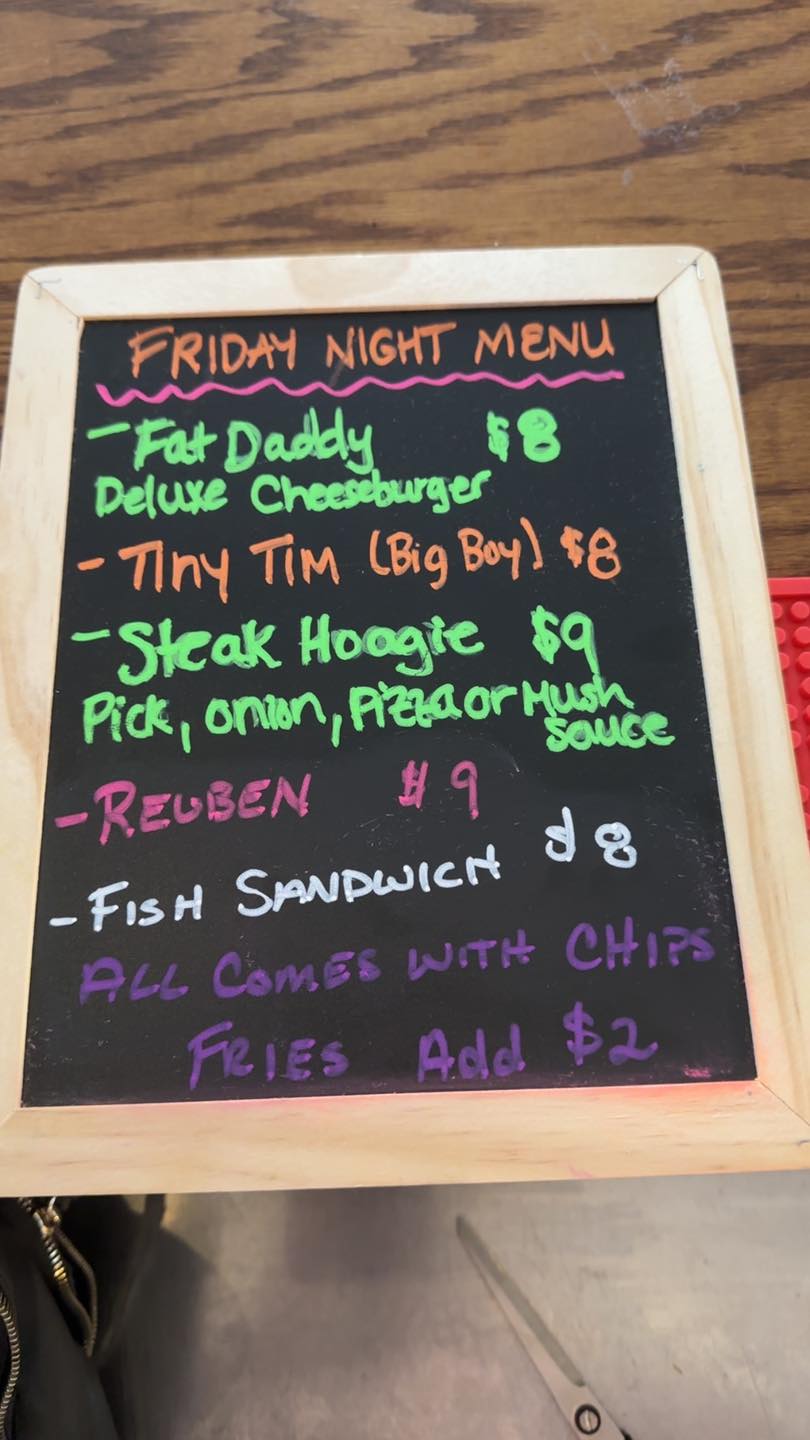 FRIDAY NIGHT MENU
- Fat Daddy $8
Deluxe Cheeseburger
- Tiny Tim (Big Boy) $8
- Steak Hoagie $9
Pick, onion, Pizza or Mush
sauce
- REUBEN $9
- FISH SANDWICH $8
ALL COMES WITH CHIPS
FRIES Add $2